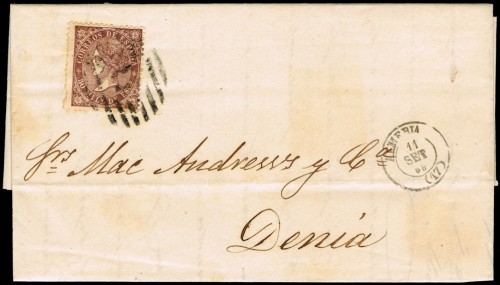 CORREOS DE ESPAÑA
Srs Mac Andrews y Ca
Denia
11
SET
(17)